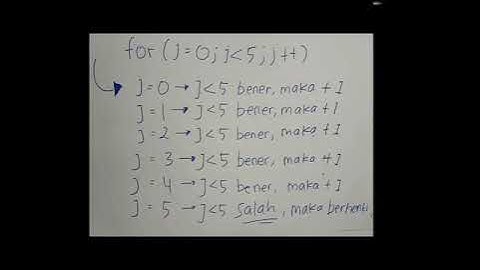 for (j=0; j<5; j++)
j = 0 → j<5 bener, maka +1
j = 1 → j<5 bener, maka +1
j = 2 → j<5 bener, maka +1
j = 3 → j<5 bener, maka +1
j = 4 → j<5 bener, maka +1
j = 5 → j<5 salah, maka berhenti